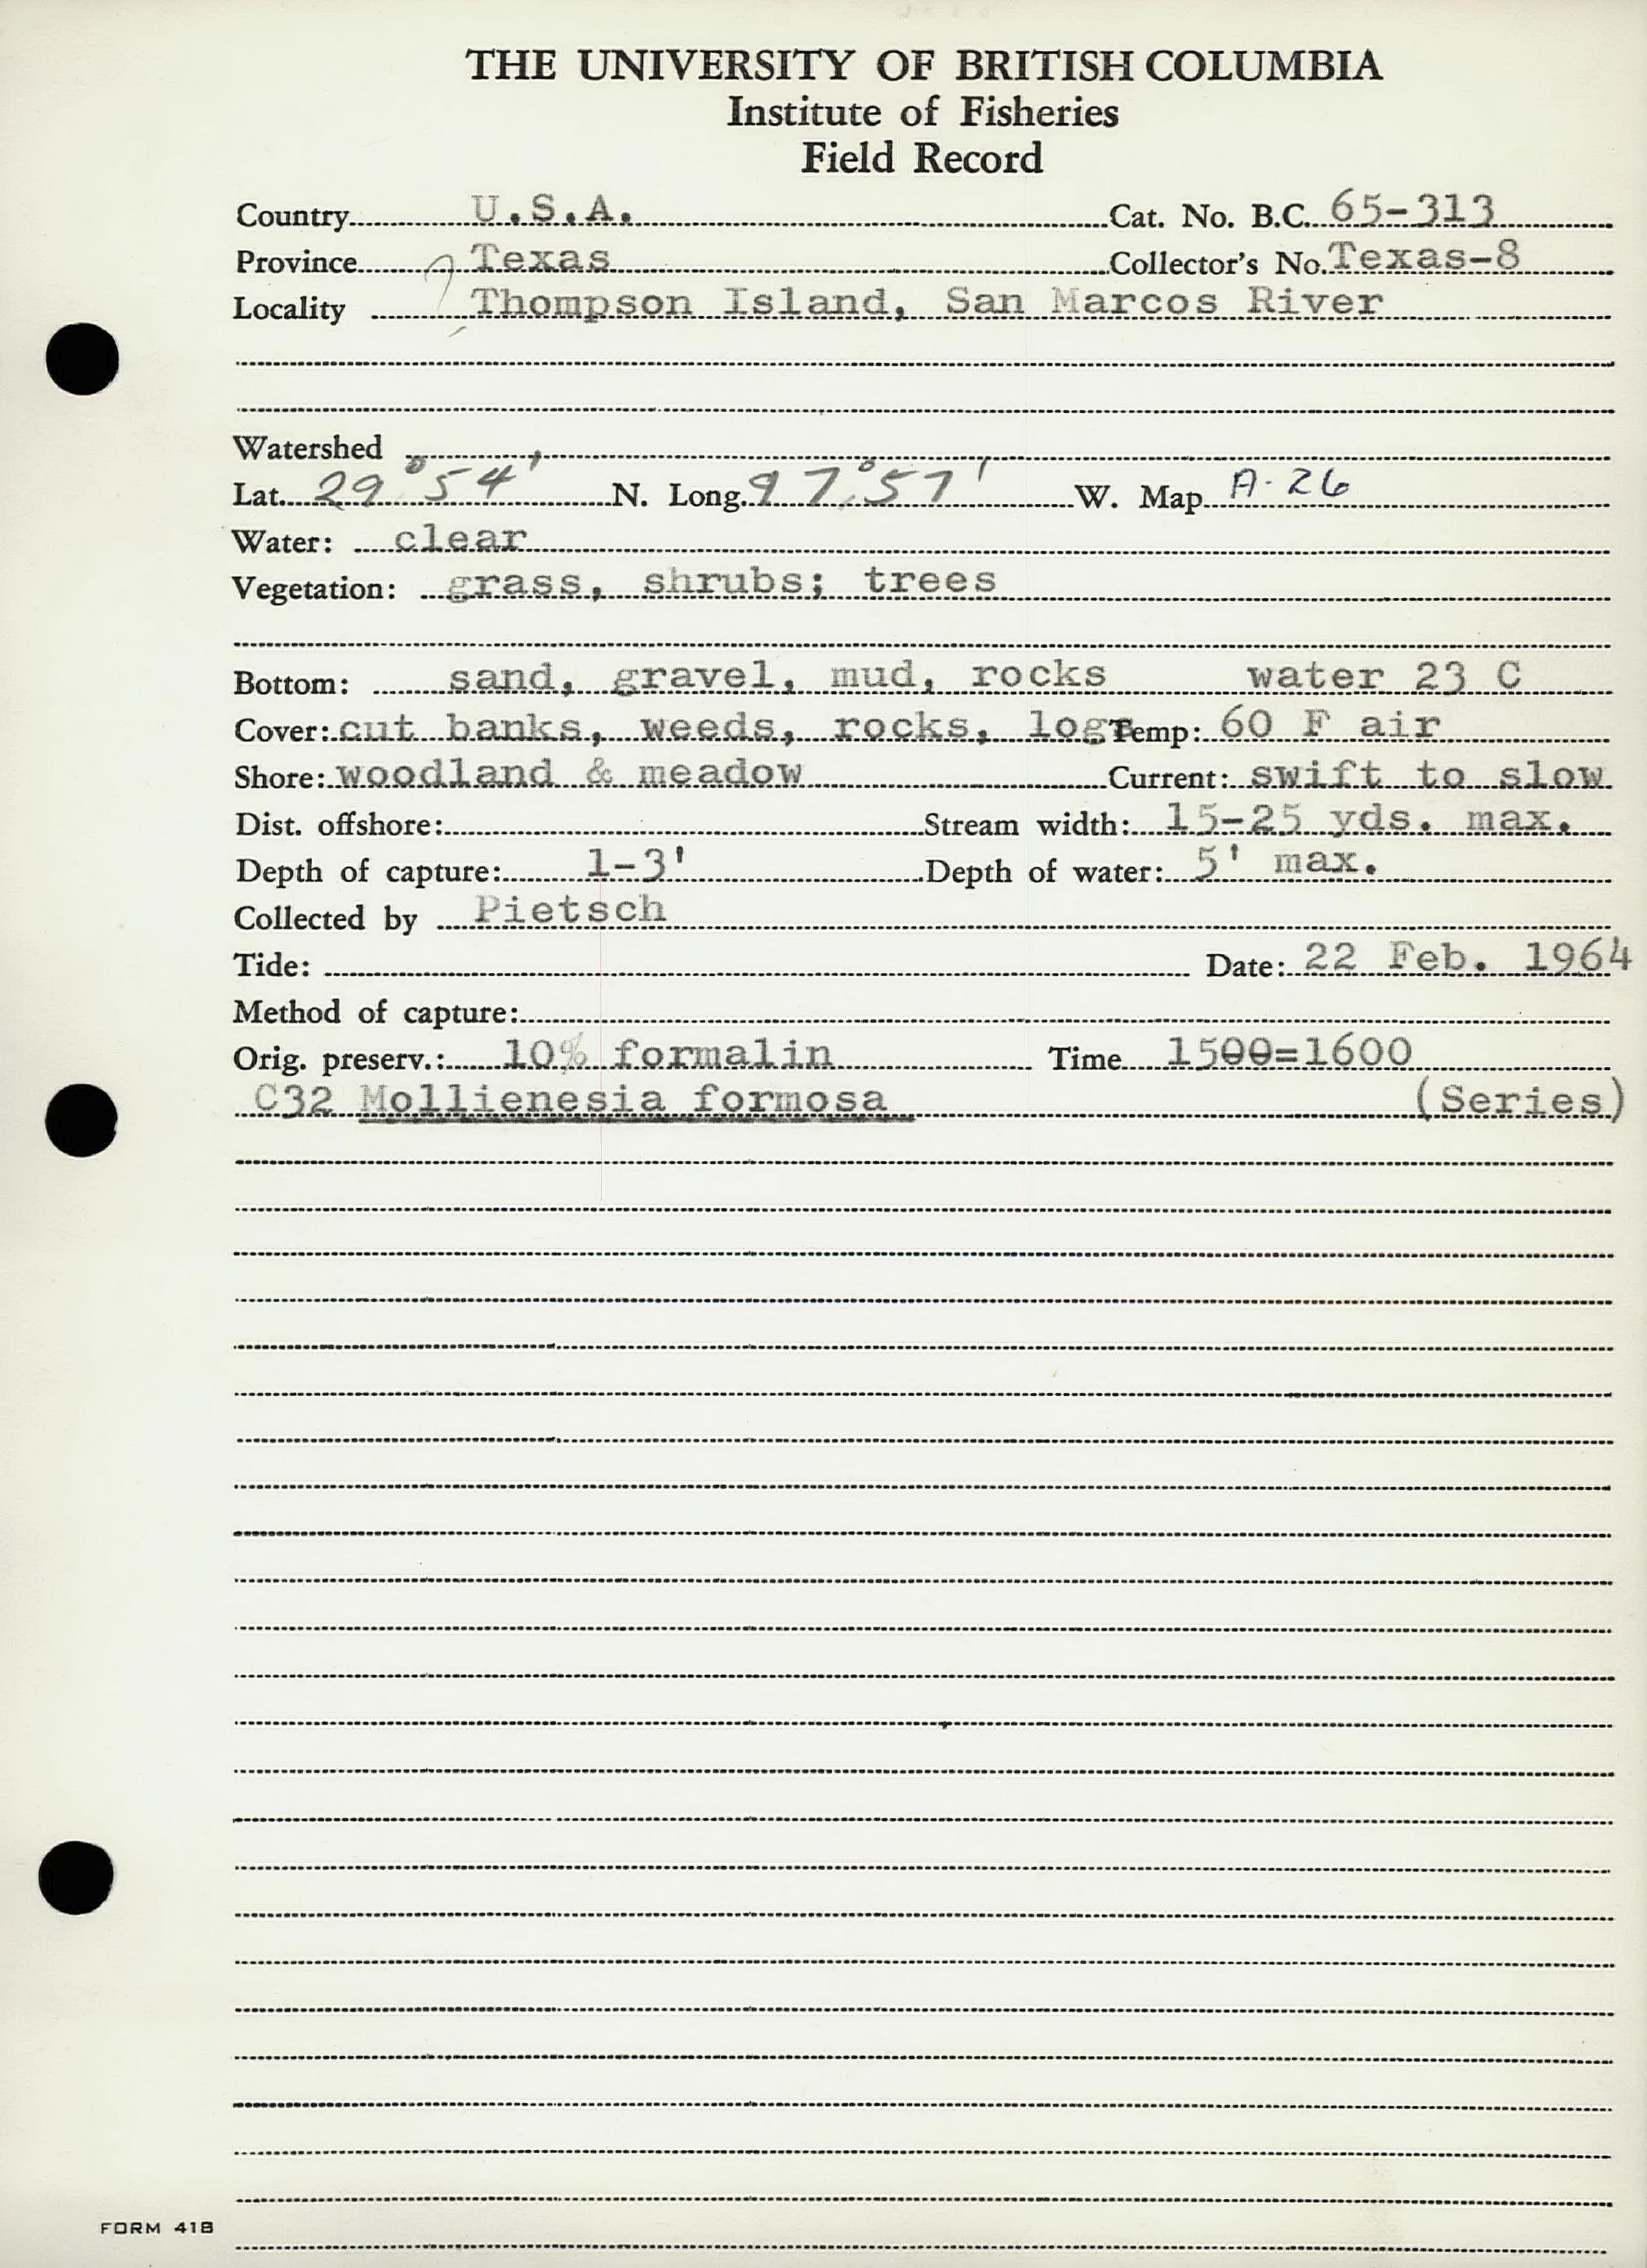 THE UNIVERSITY OF BRITISH COLUMBIA
Institute of Fisheries
Field Record
Country U.S.A. Cat. No. B.C. 65-313
Province Texas Collector's No. Texas-8
Locality ? Thompson Island, San Marcos River
Watershed
Lat. 29° 54' N. Long. 97° 57' W. Map A-26
Water: clear
Vegetation: grass, shrubs; trees
Bottom: sand, gravel, mud, rocks water 23 C
Cover: cut banks, weeds, rocks, logs Temp: 60 F air
Shore: woodland & meadow Current: swift to slow
Dist. offshore: Stream width: 15-25 yds. max.
Depth of capture: 1-3' Depth of water: 5' max.
Collected by Pietsch
Tide: Date: 22 Feb. 1964
Method of capture:
Orig. preserv.: 10% formalin Time 1500=1600
C32 Mollienesia formosa (Series)
FORM 41B